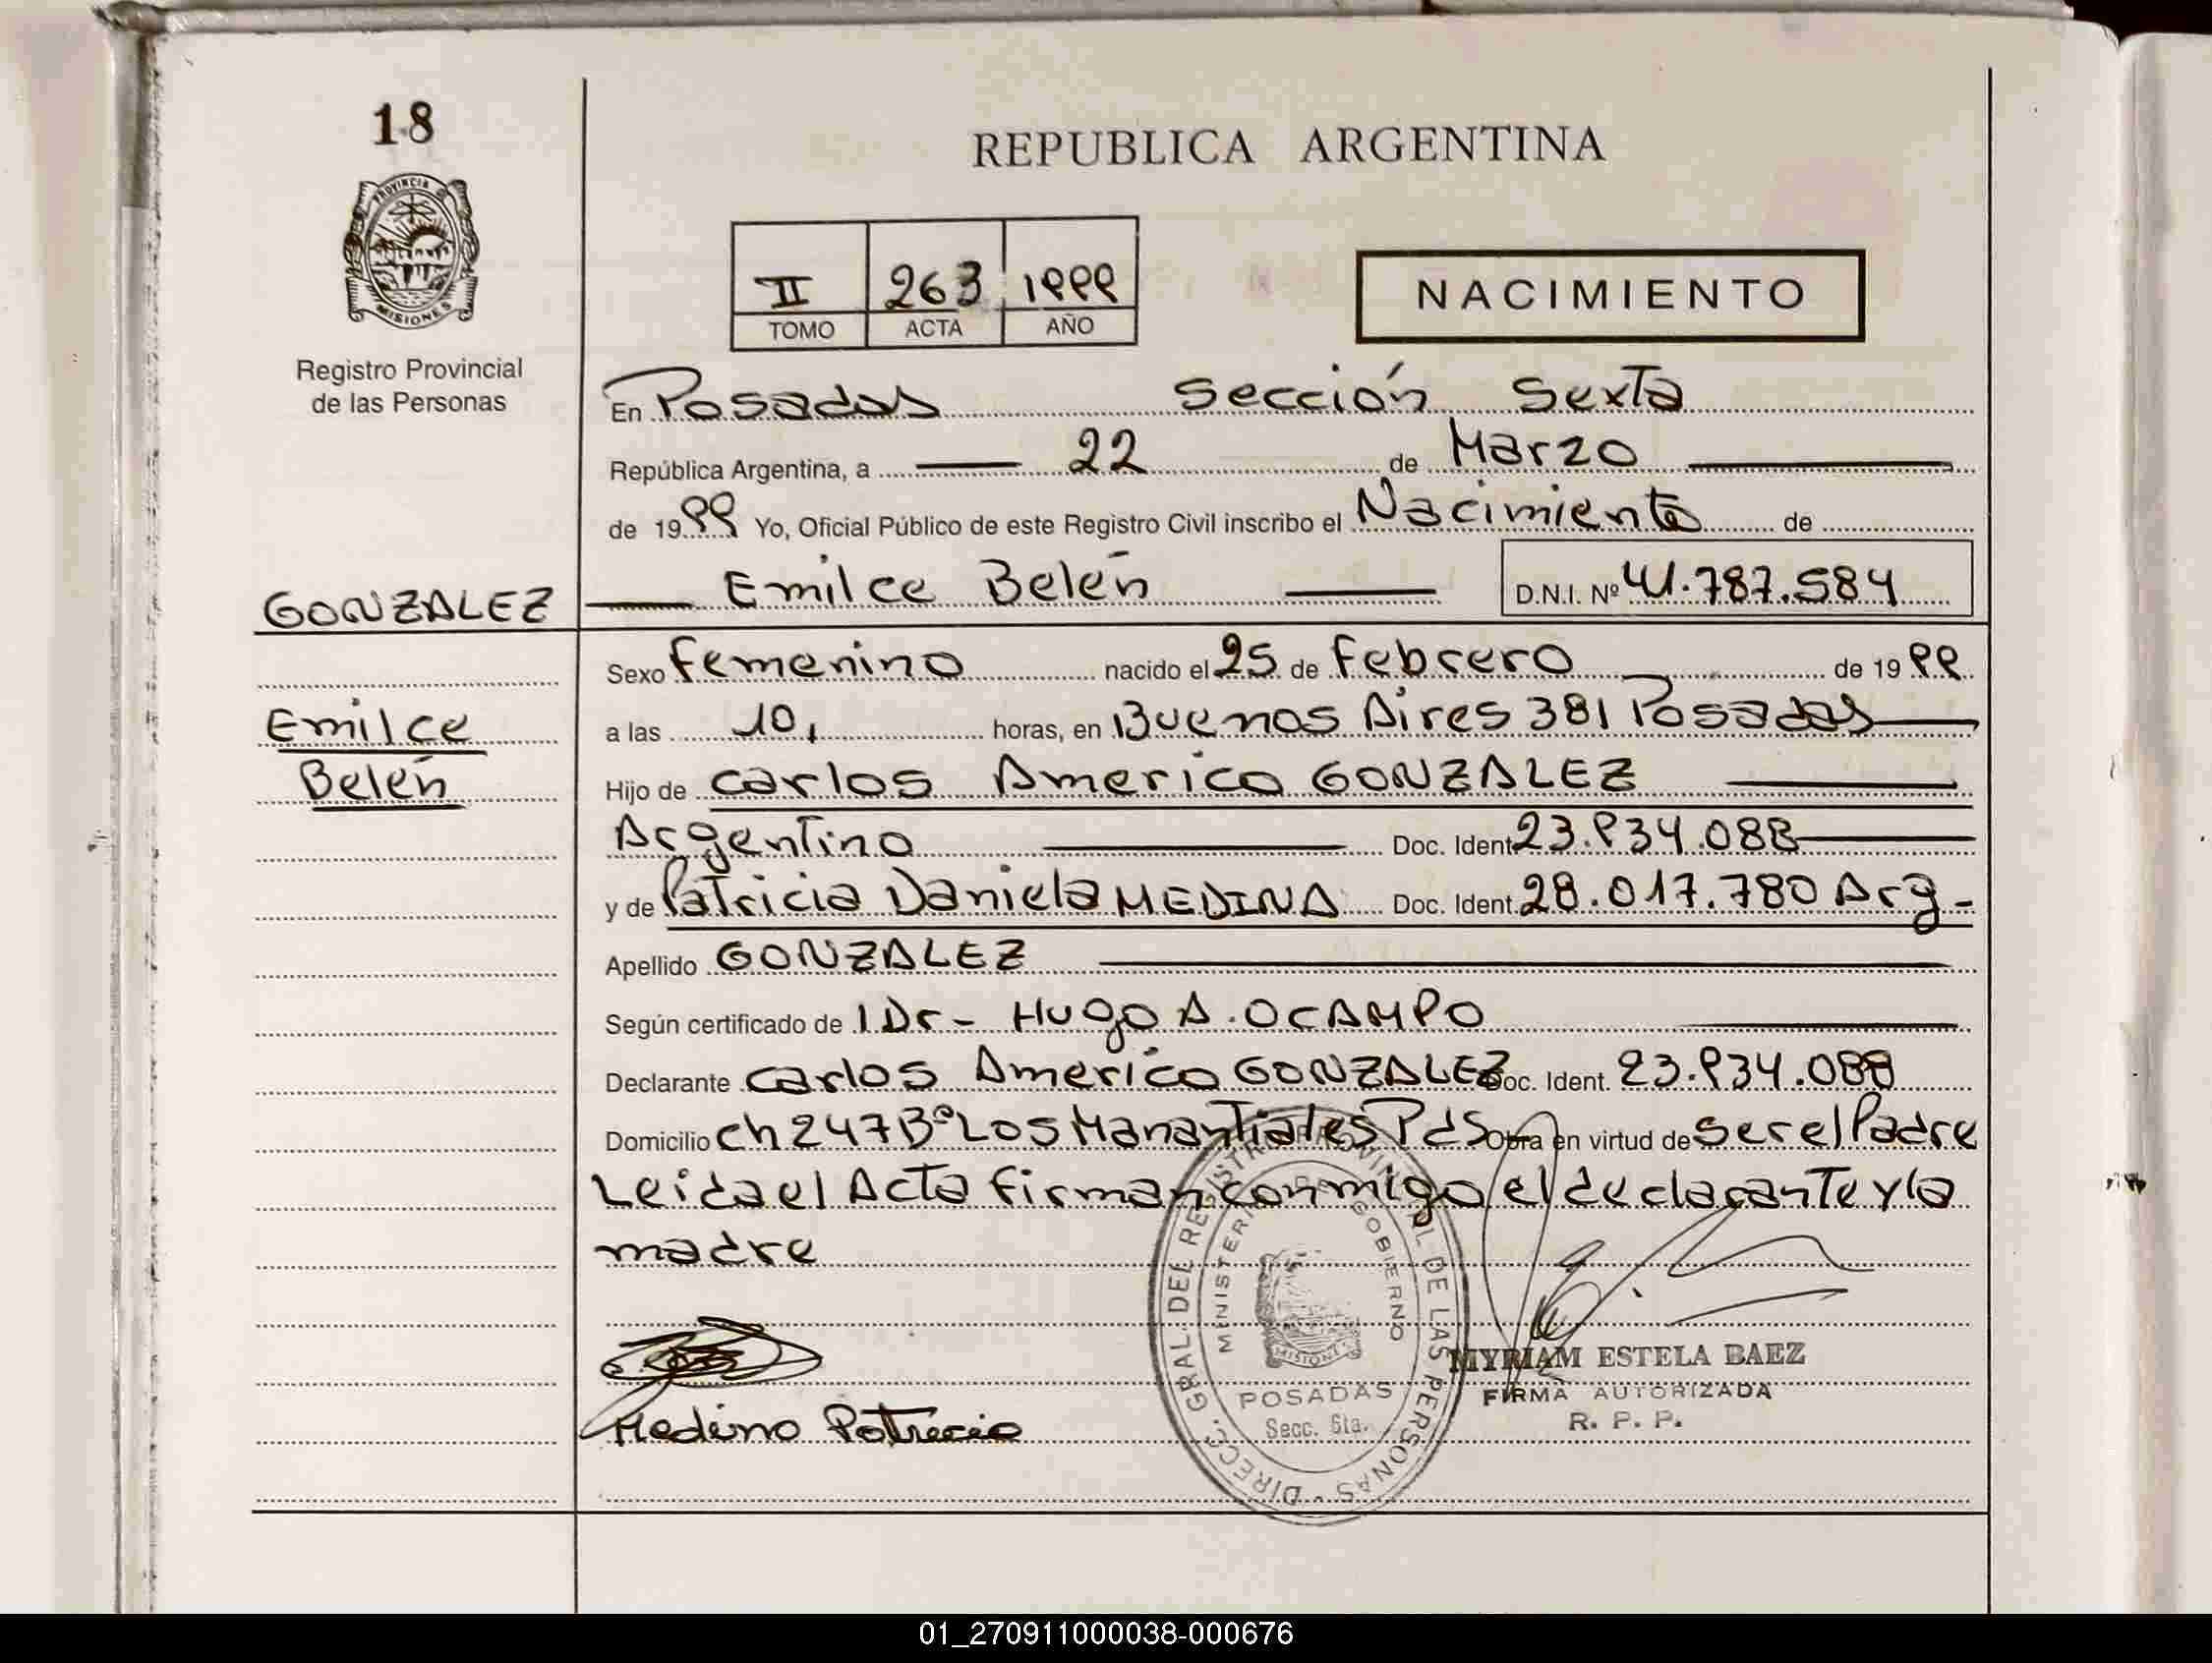 18
PROVINCIA D
MISIONES
Registro Provincial
de las Personas
REPUBLICA ARGENTINA
II 263 1999
TOMO ACTA AÑO
NACIMIENTO
En Posadas Sección Sexta
República Argentina, a 22 de Marzo
de 1999 Yo, Oficial Público de este Registro Civil inscribo el Nacimiento de
GONZALEZ Emilce Belén D.N.I. Nº 41.787.584
Sexo Femenino nacido el 25 de Febrero de 1999
Emilce
Belén
a las 10, horas, en Buenos Aires 381 Posadas
Hijo de Carlos Americo GONZALEZ
Argentino Doc. Ident. 23.934.088
y de Patricia Daniela MEDINA Doc. Ident. 28.017.780 Arg-
Apellido GONZALEZ
Según certificado de l Dr- Hugo A. OCAMPO
Declarante Carlos Américo GONZALEZ Doc. Ident. 23.934.088
Domicilio Ch 247 Bº Los Manantiales Pdas Obra en virtud de ser el Padre
Leida el Acta firman conmigo el declarante y la
madre
Medina Patricia
DIRECC. GRAL. DEL REGISTRO PROVINCIAL DE LAS PERSONAS
MINISTERIO DE GOBIERNO
MISIONES
POSADAS
Secc. 6ta.
MYRIAM ESTELA BAEZ
FIRMA AUTORIZADA
R. P. P.
01_270911000038-000676